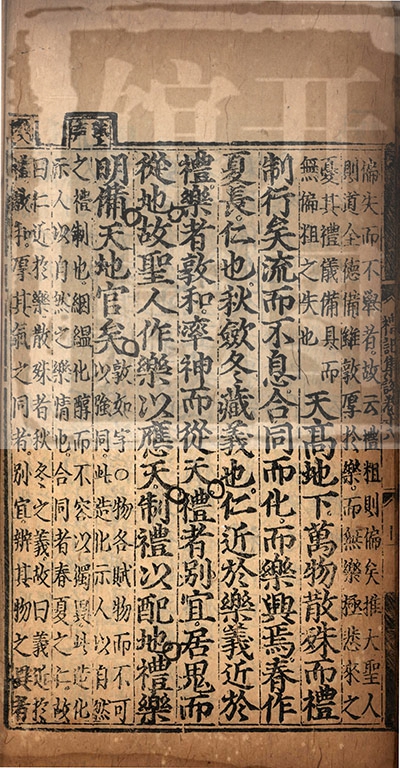 偏失而不舉者。故云禮粗則偏矣推大聖人
則道全德備雖敦厚於樂而無樂極悲來之
憂其禮儀備具而
無偏粗之失也
天高地下萬物散殊而禮
制行矣流而不息合同而化而樂興焉春作
夏長。仁也秋斂冬藏義也。仁近於樂義近於
禮。樂者敦和。率神而從天。禮者別宜。居鬼而
從地故聖人作樂以應天制禮以配地禮樂
明備天地官矣
敦如字○物各賦物而不可
以強同此造化示人以自然
之禮制也。絪縕化醇而不容以獨異此造化
示人以自然之樂情也。合同者春夏之仁。故
曰仁近於樂散殊者秋冬之義故曰義近於
禮敦和。厚其氣之同者。別宜。辨其物之異者